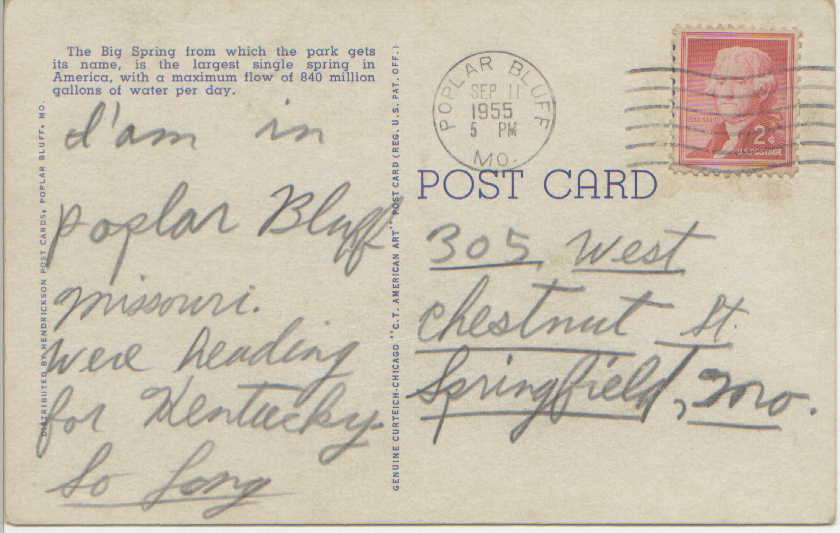 The Big Spring from which the park gets
its name, is the largest single spring in
America, with a maximum flow of 840 million
gallons of water per day.
I'am in
poplar Bluff
missouri.
were heading
for Kentucky.
So Long
DISTRIBUTED BY HENDRICKSON POST CARDS, POPLAR BLUFF, MO.
GENUINE CURTEICH-CHICAGO "C.T. AMERICAN ART" POST CARD (REG. U.S. PAT. OFF.)
POPLAR BLUFF
SEP 11
1955
5 PM
MO.
2¢
U.S. POSTAGE
POST CARD
305 West
chestnut St.
Springfield, Mo.